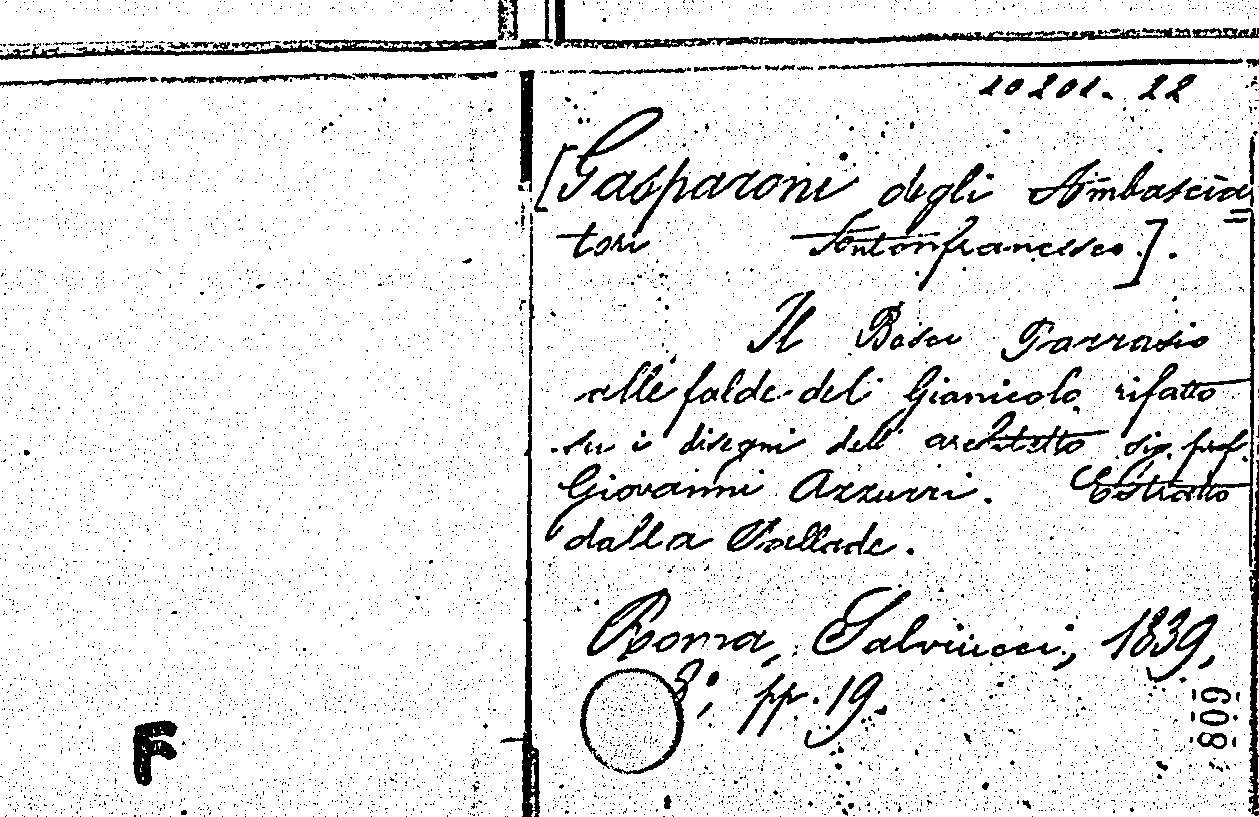 10201. 22
[Gasparoni degli Ambascia=
tori Fontanfrancesco].
Il Bosco Parrasio
alle falde del Gianicolo rifatto
su i disegni dell' architetto sig. prof.
Giovanni Azzurri. Estratto
dalla Pallade.
Roma, Salviucci, 1839,
8°, pp. 19.
809
F